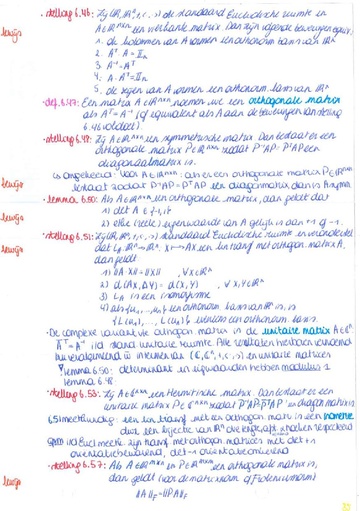 bewijs
• stelling 6.46: Zij (ℝ, ℝⁿ, +, <·,·>) de standaard Euclidische ruimte en
A ∈ ℝⁿˣⁿ een vierkante matrix. Dan zijn volgende beweringen equiv:
1. de kolommen van A vormen een orthonorm. basis van ℝⁿ
2. Aᵀ·A = 𝕀ₙ
3. A⁻¹ = Aᵀ
4. A·Aᵀ = 𝕀ₙ
5. de rijen van A vormen een orthonorm. basis van ℝⁿ
• def. 6.47: Een matrix A ∈ ℝⁿˣⁿ noemen we een orthogonale matrix
als Aᵀ = A⁻¹ (of equivalent als A aan de beweringen van stelling
6.46 voldoet).
• stelling 6.49: Zij A ∈ ℝⁿˣⁿ een symmetrische matrix. Dan bestaat er een
orthogonale matrix P ∈ ℝⁿˣⁿ zodat P⁻¹AP = PᵀAP een
diagonaalmatrix is.
↳ omgekeerd: voor A ∈ ℝⁿˣⁿ: als er een orthogonale matrix P ∈ ℝⁿˣⁿ
bewijs
bestaat zodat P⁻¹AP = PᵀAP een diagonmatrix, dan is A symm.
bewijs
• lemma 6.50: Als A ∈ ℝⁿˣⁿ een orthogonale matrix, dan geldt dat
1) det A ∈ {-1, 1}
2) elke (reële) eigenwaarde van A gelijk is aan +1 of -1.
bewijs
• stelling 6.51: Zij (ℝ, ℝⁿ, +, <·,·>) standaard Euclidische ruimte en
dat L_A: ℝⁿ → ℝⁿ: X ↦ AX een lin transf met orthogon. matrix A,
dan geldt
1) ‖AX‖ = ‖X‖ , ∀X ∈ ℝⁿ
2) d(AX, AY) = d(X, Y) , ∀X, Y ∈ ℝⁿ
3) L_A is een isomorfisme
4) als {u₁, ..., uₙ} een orthonorm basis van ℝⁿ is, is
{L(u₁), ..., L(uₙ)} een orthonorm. basis.
• De complexe variant vd orthogon matrix is de unitaire matrix A ∈ ℂⁿˣⁿ
Āᵀ = A⁻¹ stand unitaire ruimte. Alle resultaten hierboven
in termen van (ℂ, ℂⁿ, +, <·,·>) en unitaire matrices
lemma 6.50: determinant en eigwaarden hebben modulus 1
lemma 6.48:
• stelling 6.53: Zij A ∈ ℂⁿˣⁿ een Hermitische matrix. Dan bestaat er een
unitaire matrix P ∈ ℂⁿˣⁿ zodat P⁻¹AP = P̄ᵀAP een diagon matrix is
6.51 meetkundig: een lin transf met een orthogon matrix is een isometrie
dus een bijectie van ℝⁿ die
Eucl meetk. zijn transf met orthogon matrices met det +1
orientatiebewarend, det -1 orientatieomkerend
bewijs
• stelling 6.57: Als A ∈ ℝᵐˣⁿ en P ∈ ℝᵐˣᵐ een orthogonale matrix is,
dan geldt (voor de matrixnorm of Frobeniusnorm)
‖A‖_F = ‖PA‖_F